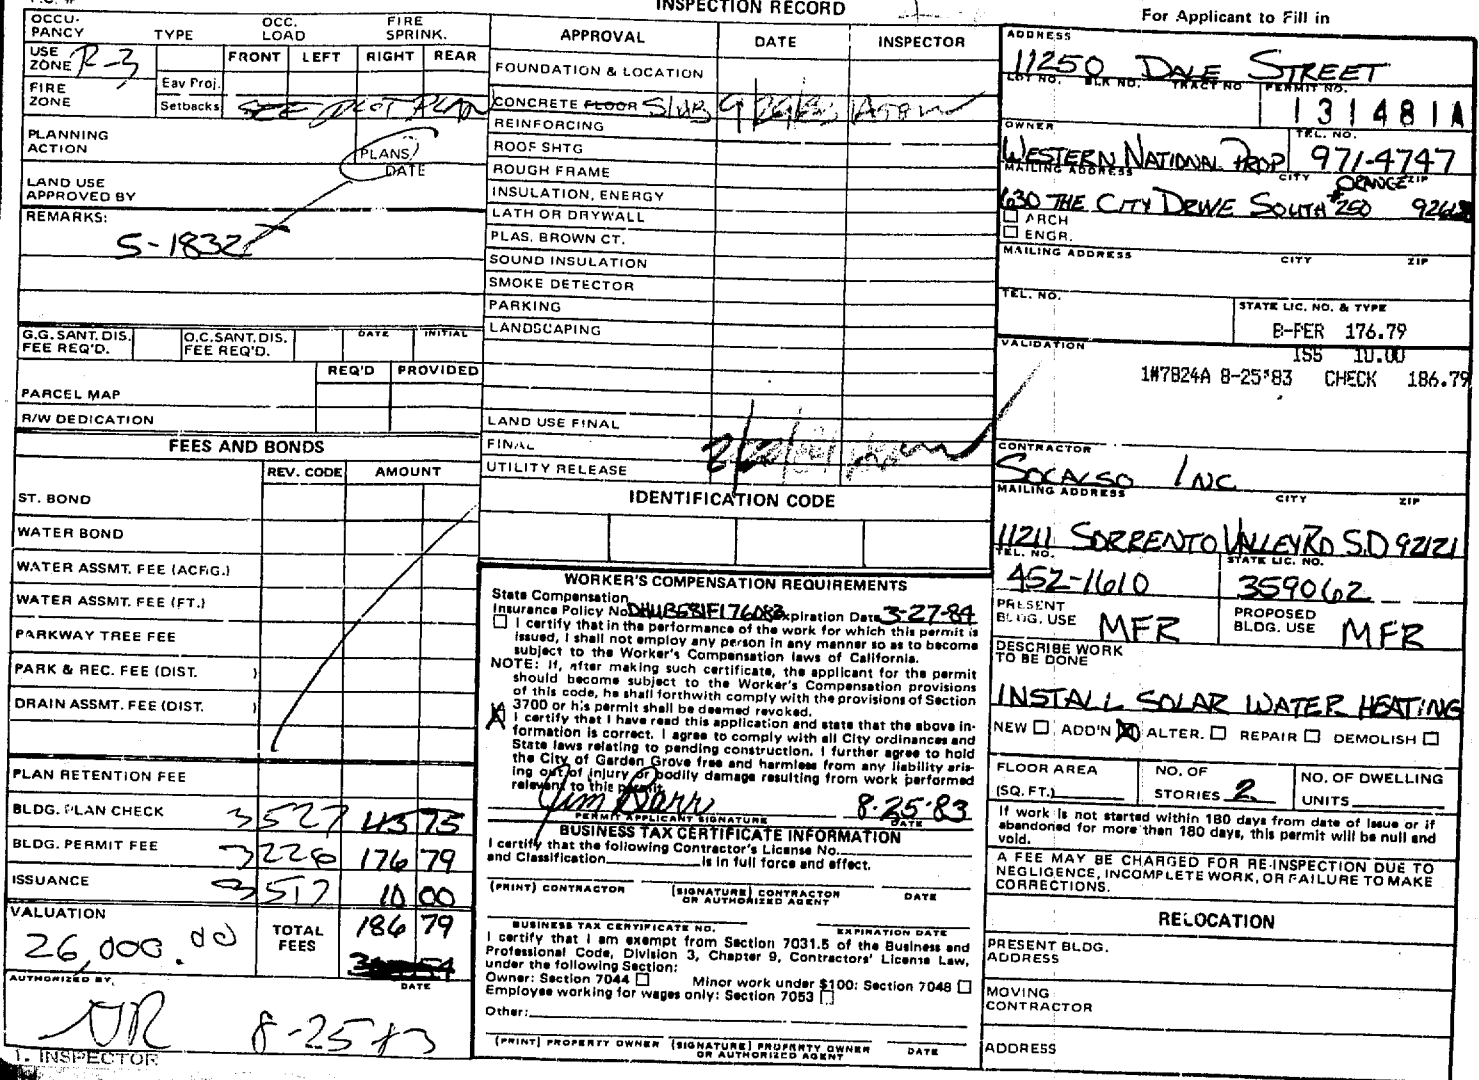 INSPECTION RECORD
For Applicant to Fill in
OCCU-
PANCY
TYPE
OCC.
LOAD
FIRE
SPRINK.
USE
ZONE R-3
FRONT LEFT RIGHT REAR
FIRE
ZONE
Eav Proj.
Setbacks SEE PLOT PLAN
PLANNING
ACTION
PLANS
DATE
LAND USE
APPROVED BY
REMARKS:
S-1832
G.G. SANT. DIS.
FEE REQ'D.
O.C. SANT. DIS.
FEE REQ'D.
DATE INITIAL
REQ'D PROVIDED
PARCEL MAP
R/W DEDICATION
FEES AND BONDS
REV. CODE AMOUNT
ST. BOND
WATER BOND
WATER ASSMT. FEE (ACRG.)
WATER ASSMT. FEE (FT.)
PARKWAY TREE FEE
PARK & REC. FEE (DIST. )
DRAIN ASSMT. FEE (DIST. )
PLAN RETENTION FEE
BLDG. PLAN CHECK 3527
BLDG. PERMIT FEE 3226 176 79
ISSUANCE 3517 10 00
VALUATION
26,000.00
TOTAL
FEES
186 79
AUTHORIZED BY
DATE
8-25-83
1. INSPECTOR
APPROVAL DATE INSPECTOR
FOUNDATION & LOCATION
CONCRETE FLOOR Slab
REINFORCING
ROOF SHTG
ROUGH FRAME
INSULATION, ENERGY
LATH OR DRYWALL
PLAS. BROWN CT.
SOUND INSULATION
SMOKE DETECTOR
PARKING
LANDSCAPING
LAND USE FINAL
FINAL
UTILITY RELEASE
IDENTIFICATION CODE
WORKER'S COMPENSATION REQUIREMENTS
State Compensation
Insurance Policy No. Expiration Date 3-27-84
I certify that in the performance of the work for which this permit is
issued, I shall not employ any person in any manner so as to become
subject to the Worker's Compensation laws of California.
NOTE: If, after making such certificate, the applicant for the permit
should become subject to the Worker's Compensation provisions
of this code, he shall forthwith comply with the provisions of Section
3700 or his permit shall be deemed revoked.
X I certify that I have read this application and state that the above in-
formation is correct. I agree to comply with all City ordinances and
State laws relating to pending construction. I further agree to hold
the City of Garden Grove free and harmless from any liability aris-
ing out of injury or bodily damage resulting from work performed
relevant to this permit.
Jim Barr 8-25-83
PERMIT APPLICANT SIGNATURE DATE
BUSINESS TAX CERTIFICATE INFORMATION
I certify that the following Contractor's License No.
and Classification is in full force and effect.
(PRINT) CONTRACTOR (SIGNATURE) CONTRACTOR DATE
OR AUTHORIZED AGENT
BUSINESS TAX CERTIFICATE NO. EXPIRATION DATE
I certify that I am exempt from Section 7031.5 of the Business and
Professional Code, Division 3, Chapter 9, Contractors' License Law,
under the following Section:
Owner: Section 7044 Minor work under $100: Section 7048
Employee working for wages only: Section 7053
Other:
(PRINT) PROPERTY OWNER (SIGNATURE) PROPERTY OWNER DATE
OR AUTHORIZED AGENT
ADDRESS
11250 DALE STREET
LOT NO. BLK NO. TRACT NO PERMIT NO.
131481A
OWNER TEL. NO.
WESTERN NATIONAL PROP 971-4747
MAILING ADDRESS CITY ORANGE ZIP
630 THE CITY DRIVE SOUTH #250
ARCH
ENGR.
MAILING ADDRESS CITY ZIP
TEL. NO. STATE LIC. NO. & TYPE
B-PER 176.79
VALIDATION ISS 10.00
1#7824A 8-25'83 CHECK 186.79
CONTRACTOR
SOCALSO INC
MAILING ADDRESS CITY ZIP
11211 SORRENTO VALLEY RD S.D 92121
TEL. NO. STATE LIC. NO.
452-1610 359062
PRESENT
BLDG. USE MFR
PROPOSED
BLDG. USE MFR
DESCRIBE WORK
TO BE DONE
INSTALL SOLAR WATER HEATING
NEW ADD'N X ALTER. REPAIR DEMOLISH
FLOOR AREA
(SQ. FT.)
NO. OF
STORIES 2
NO. OF DWELLING
UNITS
If work is not started within 180 days from date of issue or if
abandoned for more than 180 days, this permit will be null and
void.
A FEE MAY BE CHARGED FOR RE-INSPECTION DUE TO
NEGLIGENCE, INCOMPLETE WORK, OR FAILURE TO MAKE
CORRECTIONS.
RELOCATION
PRESENT BLDG.
ADDRESS
MOVING
CONTRACTOR
ADDRESS